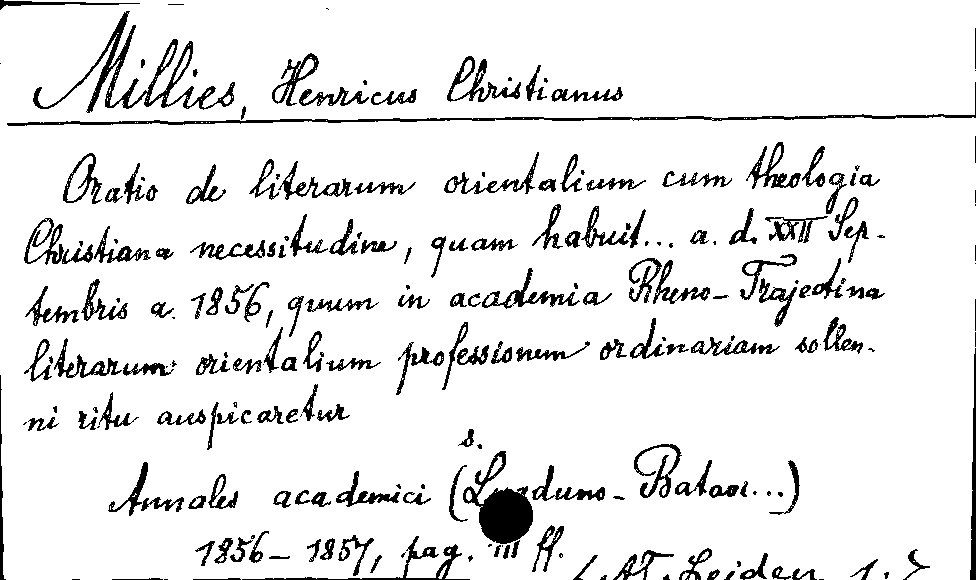 Millies, Henricus Christianus
Oratio de literarum orientalium cum theologia
Christiana necessitudine, quam habuit... a. d. XXII Sep-
tembris a. 1856, quum in academia Rheno-Trajectina
literarum orientalium professionem ordinariam sollen-
ni ritu auspicaretur
s.
Annales academici (Lugduno-Batav...)
1856-1857, pag. III ff.
Leiden